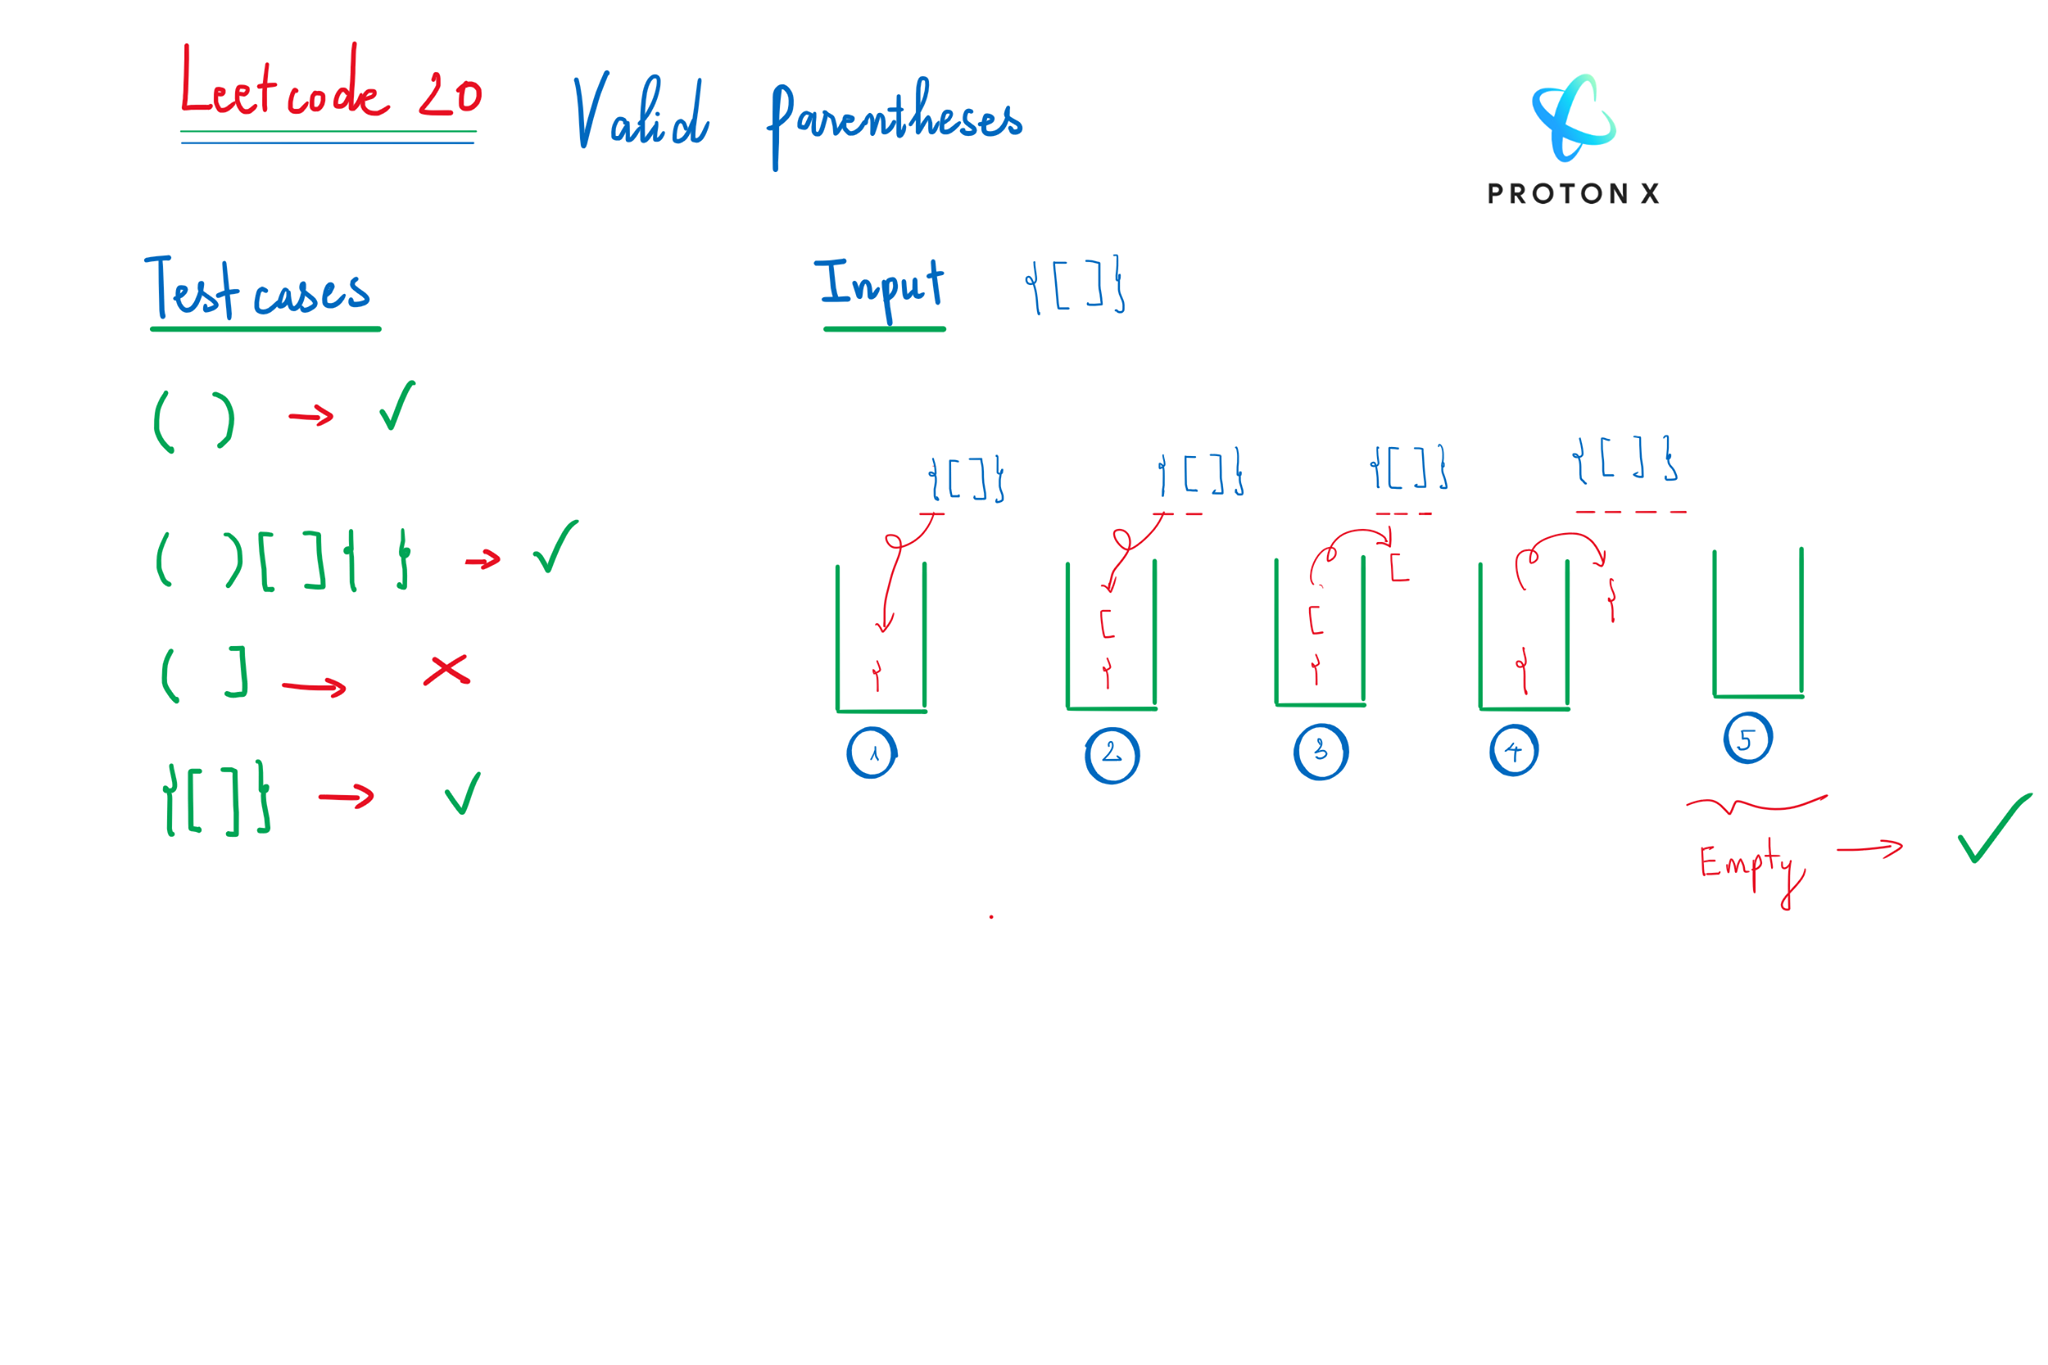 Leetcode 20 Valid Parentheses
PROTON X
Test cases
( ) → ✓
( ) [ ] { } → ✓
( ] → ✗
{ [ ] } → ✓
Input { [ ] }
{ [ ] } { [ ] } { [ ] } { [ ] }
[
{
[ [
{ { { {
1 2 3 4 5
Empty → ✓